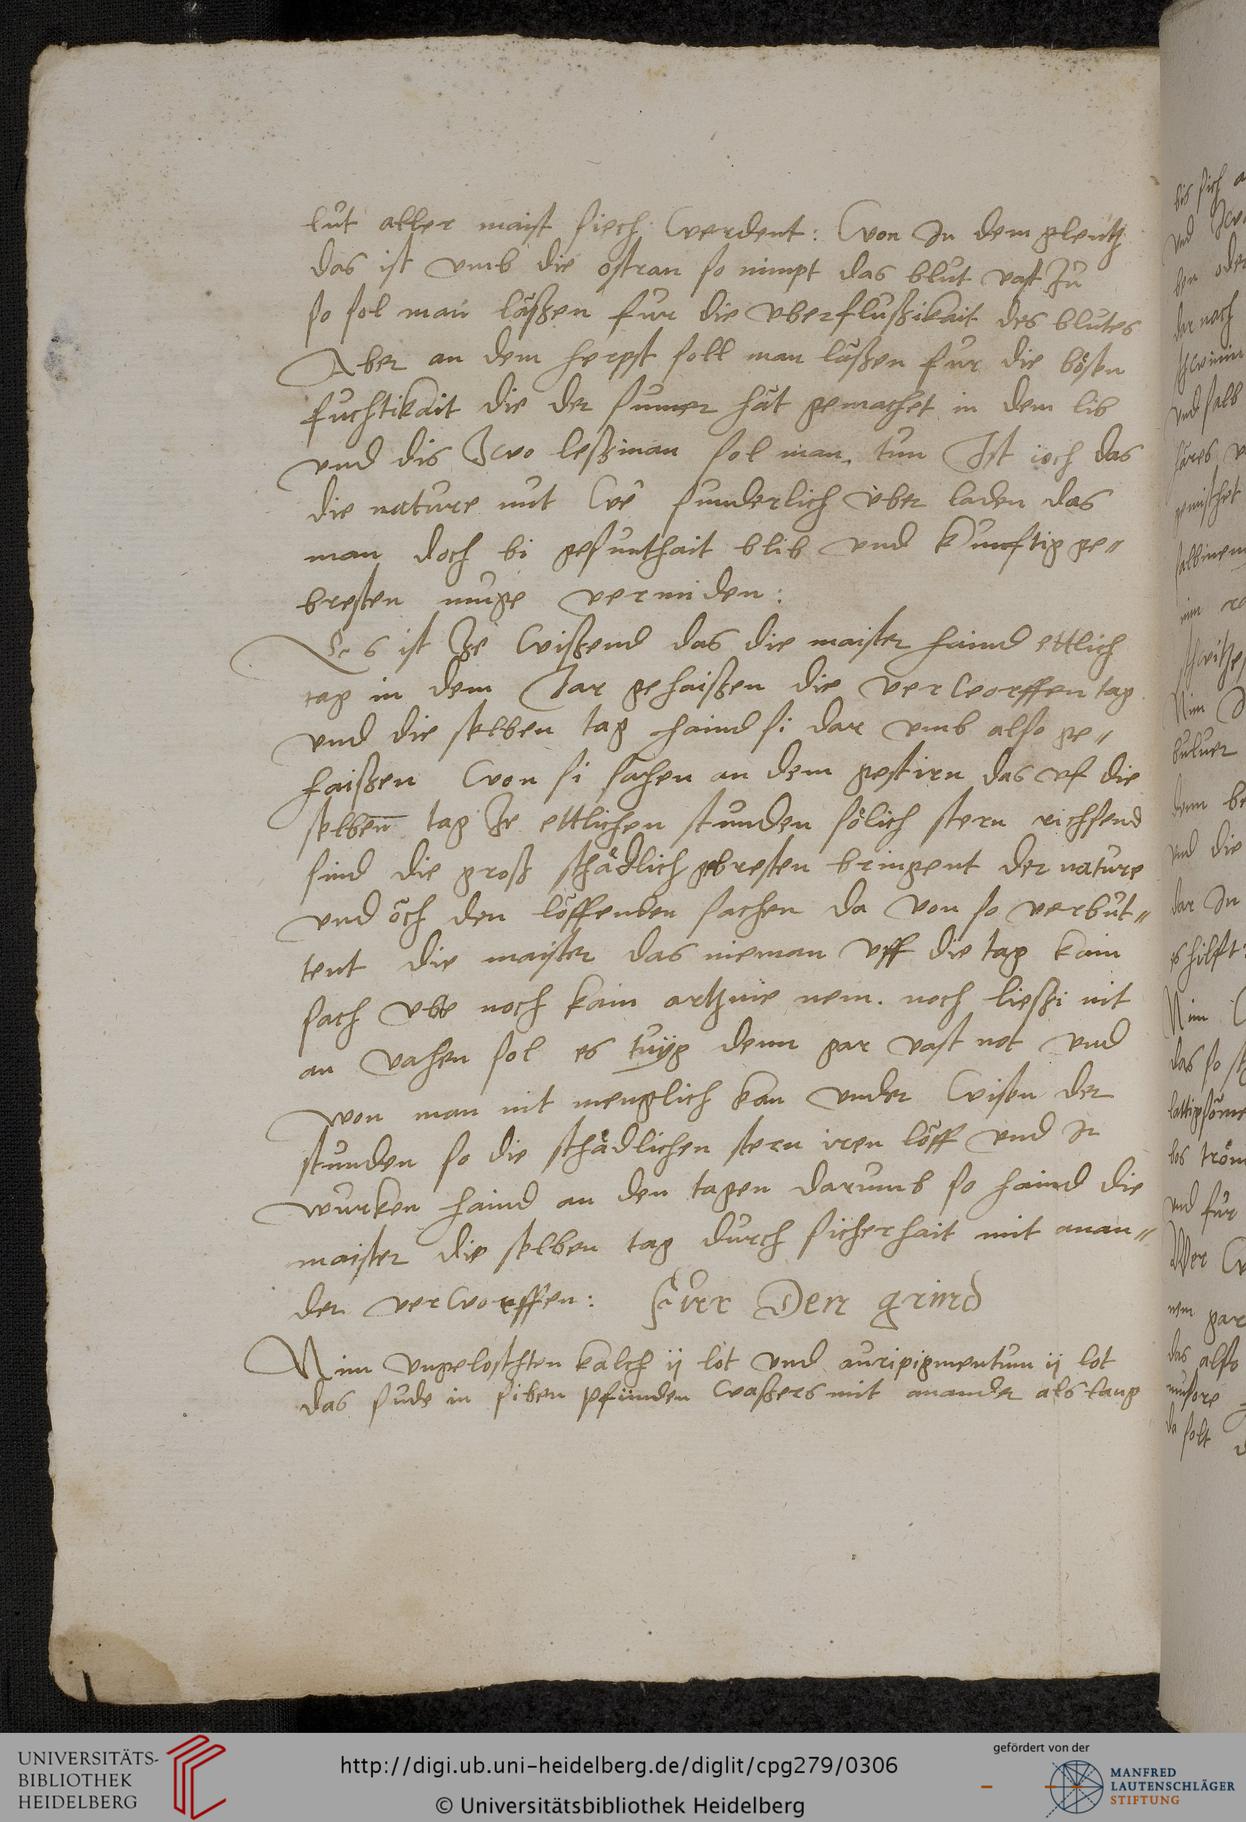 lút aller maist siech werdent: won In dem glentz
das ist vmb die ostran so nimpt das blút vast Zú
so sol man laußen fúr die vberflúßikait des blútes
Aber an dem herpst soll man laußen fúr die bösen
fúchtikait die der sumer hát gemachet in dem lib
vnd dis Zwo leßinan sol man tun Ist ioch das
die nature nút wé súnderlich úber laden das
man doch bi gesunthait blib vnd kúnftig ge„
bresten muge vermiden:
Es ist Ze wißend das die maister haind ettlich
tag in dem Jar gehaißen die verworffen tag
vnd die selben tag haind si dar vmb also ge„
haißen won si sahen an dem gestirn das vf die
selben tag Ze ettlichen stunden sölich stern richsend
sind die groß schädlich gebresten bringent der nature
vnd öch den löffenden sachen da von so verbút„
tent die maister das nieman vff die tag kain
sach vbe noch kain artznie nem. noch ließi nit
an vahen sol es túyg denn gar vast not vnd
won man nit menglich kan vnder wisen der
stunden so die schädlichen stern iren löff vnd Ir
wúrken haind an den tagen darúmb so haind die
maister die selben tag dúrch sicherhait mit anan„
der verworffen: Fúrr Den grind
Nim vngeloschten kalch ij lot vnd auripigmentum ij lot
das súde in siben pfunden waßers mit anander als lang
bis sich
vnd
den oder
dar nach
vnd salb
hares
gemischet
Nim
buluer
denn
vnd die
dar In
es hilfft
Nim
das so
vnd fúr
Wer
nem gar
das also
solt
UNIVERSITÄTS-
BIBLIOTHEK
HEIDELBERG
http://digi.ub.uni-heidelberg.de/diglit/cpg279/0306
© Universitätsbibliothek Heidelberg
gefördert von der
MANFRED
LAUTENSCHLÄGER
STIFTUNG